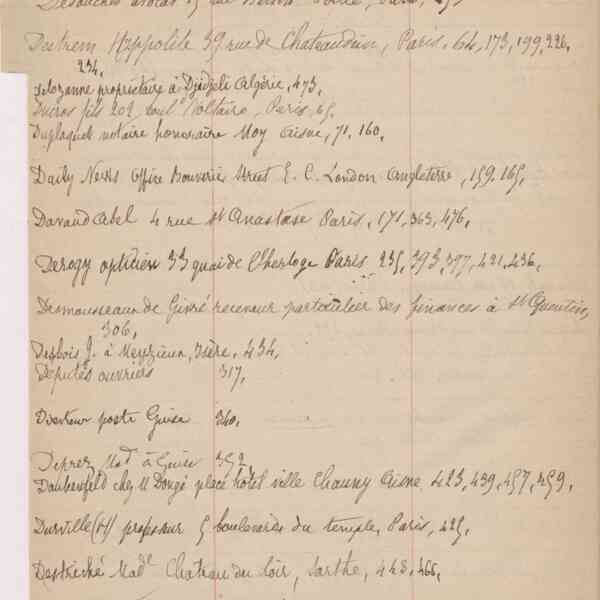 Destrem Hyppolite 39 rue de Chateaudun, Paris, 64, 173, 199, 226,
234,
propriétaire à Djidjeli Algérie, 473,
Ducros fils 202 boul. Voltaire, Paris, 65,
Duplaquet notaire honoraire Moy Aisne, 71, 160,
Daily News Office Bouverie Street E. C. London Angleterre, 159, 165,
Davaud Abel 4 rue St Anastase Paris, 171, 363, 476,
Derogy opticien 33 quai de l'horloge Paris 235, 393, 397, 421, 436,
Desmousseaux de Givré receveur particulier des finances à St Quentin,
306,
Desbois J. à Meyzieux, Isère, 434,
Députés ouvriers 317,
Directeur poste Guise 340,
Deprez Mad à Guise 352,
chez M Dougé place hôtel ville Chauny Aisne 423, 439, 457, 459,
Durville (H) professeur 5 boulevard du temple, Paris, 425,
Mad^le Chateau du Loir, Sarthe, 448, 466,